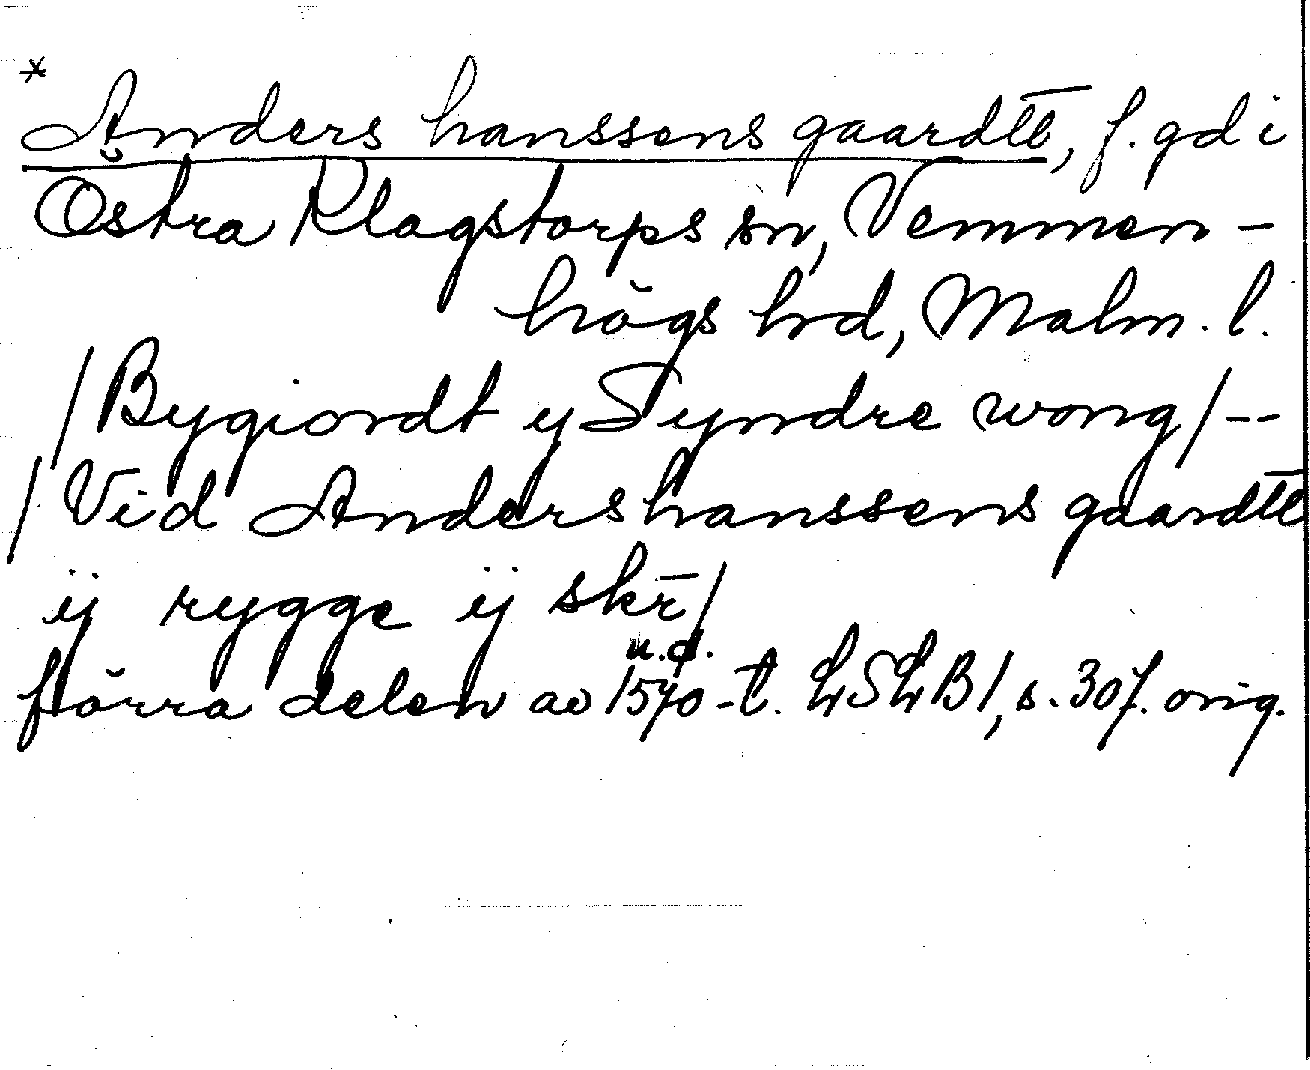 *
Anders hanssens gaardtt, f. gd i
Östra Klagstorps sn, Vemmen-
högs hd, Malm. l.
/Bygiordt y Syndre wong/--
/Vid Anders hanssens gaardtt
ÿ rygge ÿ skr̄/
u.d.
förra delen av 1570-t. LSLB1, s. 307. orig.